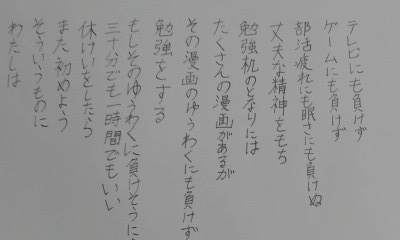 テレビにも負けず
ゲームにも負けず
部活疲れにも眠さにも負けぬ
丈夫な精神をもち
勉強机のとなりには
たくさんの漫画があるが
その漫画のゆうわくにも負けず
勉強をする
もしそのゆうわくに負けそうに
三十分でも一時間でもいい
休けいをしたら
また初めよう
そういうものに
わたしは